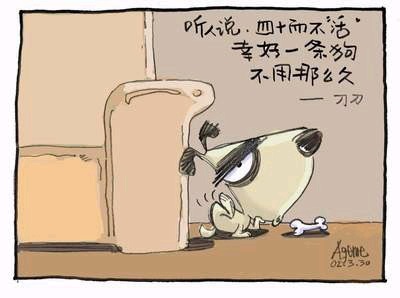 听人说.四十而不“活”
幸好一条狗
不用那么久
——刀刀
Agome
02.3.30